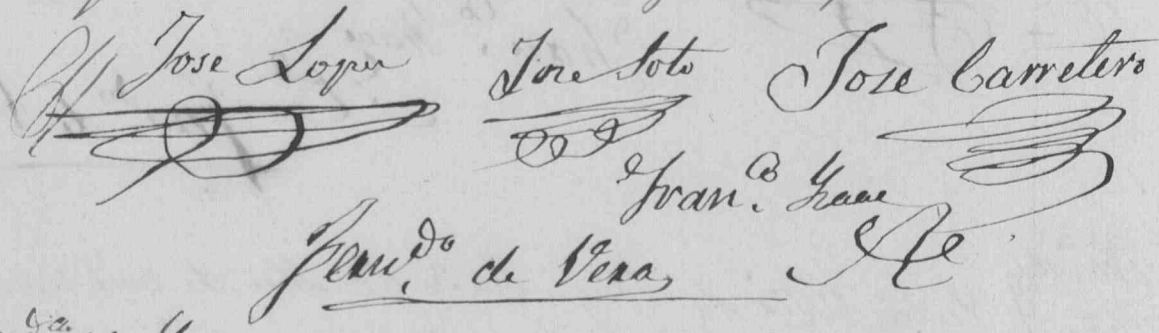 Jose Lopez Jose Soto Jose Carretero
Fran.co
Fern.do de Vera